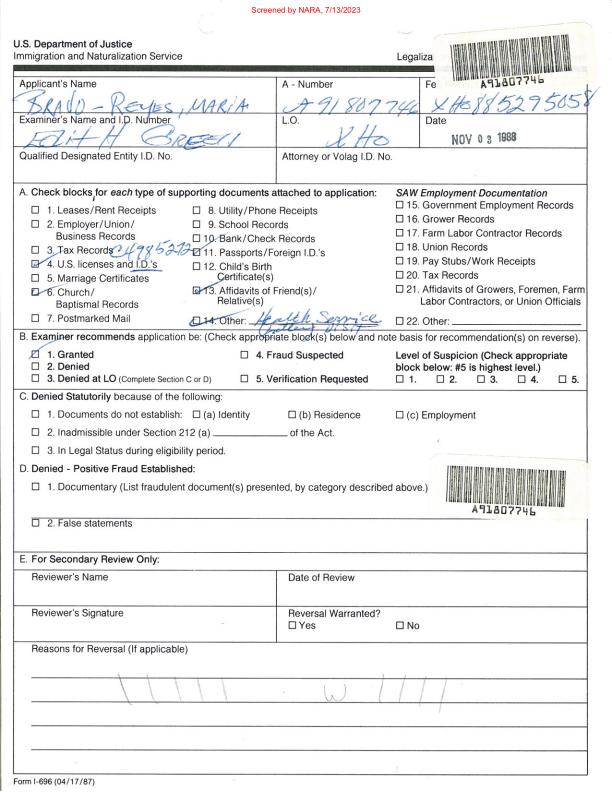 Screened by NARA, 7/13/2023
U.S. Department of Justice
Immigration and Naturalization Service
Legaliza
A91807746
Applicant's Name
A - Number
Fe
BRAVO-REYES, MARIA
A91807746
XHO885295058
Examiner's Name and I.D. Number
L.O.
Date
EDITH GREEN
XHO
NOV 03 1988
Qualified Designated Entity I.D. No.
Attorney or Volag I.D. No.
A. Check blocks for each type of supporting documents attached to application:
1. Leases/Rent Receipts
2. Employer/Union/
Business Records
3. Tax Records
4. U.S. licenses and I.D.'s
5. Marriage Certificates
6. Church/
Baptismal Records
7. Postmarked Mail
8. Utility/Phone Receipts
9. School Records
10. Bank/Check Records
11. Passports/Foreign I.D.'s
12. Child's Birth
Certificate(s)
13. Affidavits of Friend(s)/
Relative(s)
14. Other: Health Service
SAW Employment Documentation
15. Government Employment Records
16. Grower Records
17. Farm Labor Contractor Records
18. Union Records
19. Pay Stubs/Work Receipts
20. Tax Records
21. Affidavits of Growers, Foremen, Farm
Labor Contractors, or Union Officials
22. Other:
B. Examiner recommends application be: (Check appropriate block(s) below and note basis for recommendation(s) on reverse).
1. Granted
2. Denied
3. Denied at LO (Complete Section C or D)
4. Fraud Suspected
5. Verification Requested
Level of Suspicion (Check appropriate
block below: #5 is highest level.)
1. 2. 3. 4. 5.
C. Denied Statutorily because of the following:
1. Documents do not establish: (a) Identity (b) Residence (c) Employment
2. Inadmissible under Section 212 (a) of the Act.
3. In Legal Status during eligibility period.
D. Denied - Positive Fraud Established:
1. Documentary (List fraudulent document(s) presented, by category described above.)
A91807746
2. False statements
E. For Secondary Review Only:
Reviewer's Name
Date of Review
Reviewer's Signature
Reversal Warranted?
Yes No
Reasons for Reversal (If applicable)
Form I-696 (04/17/87)